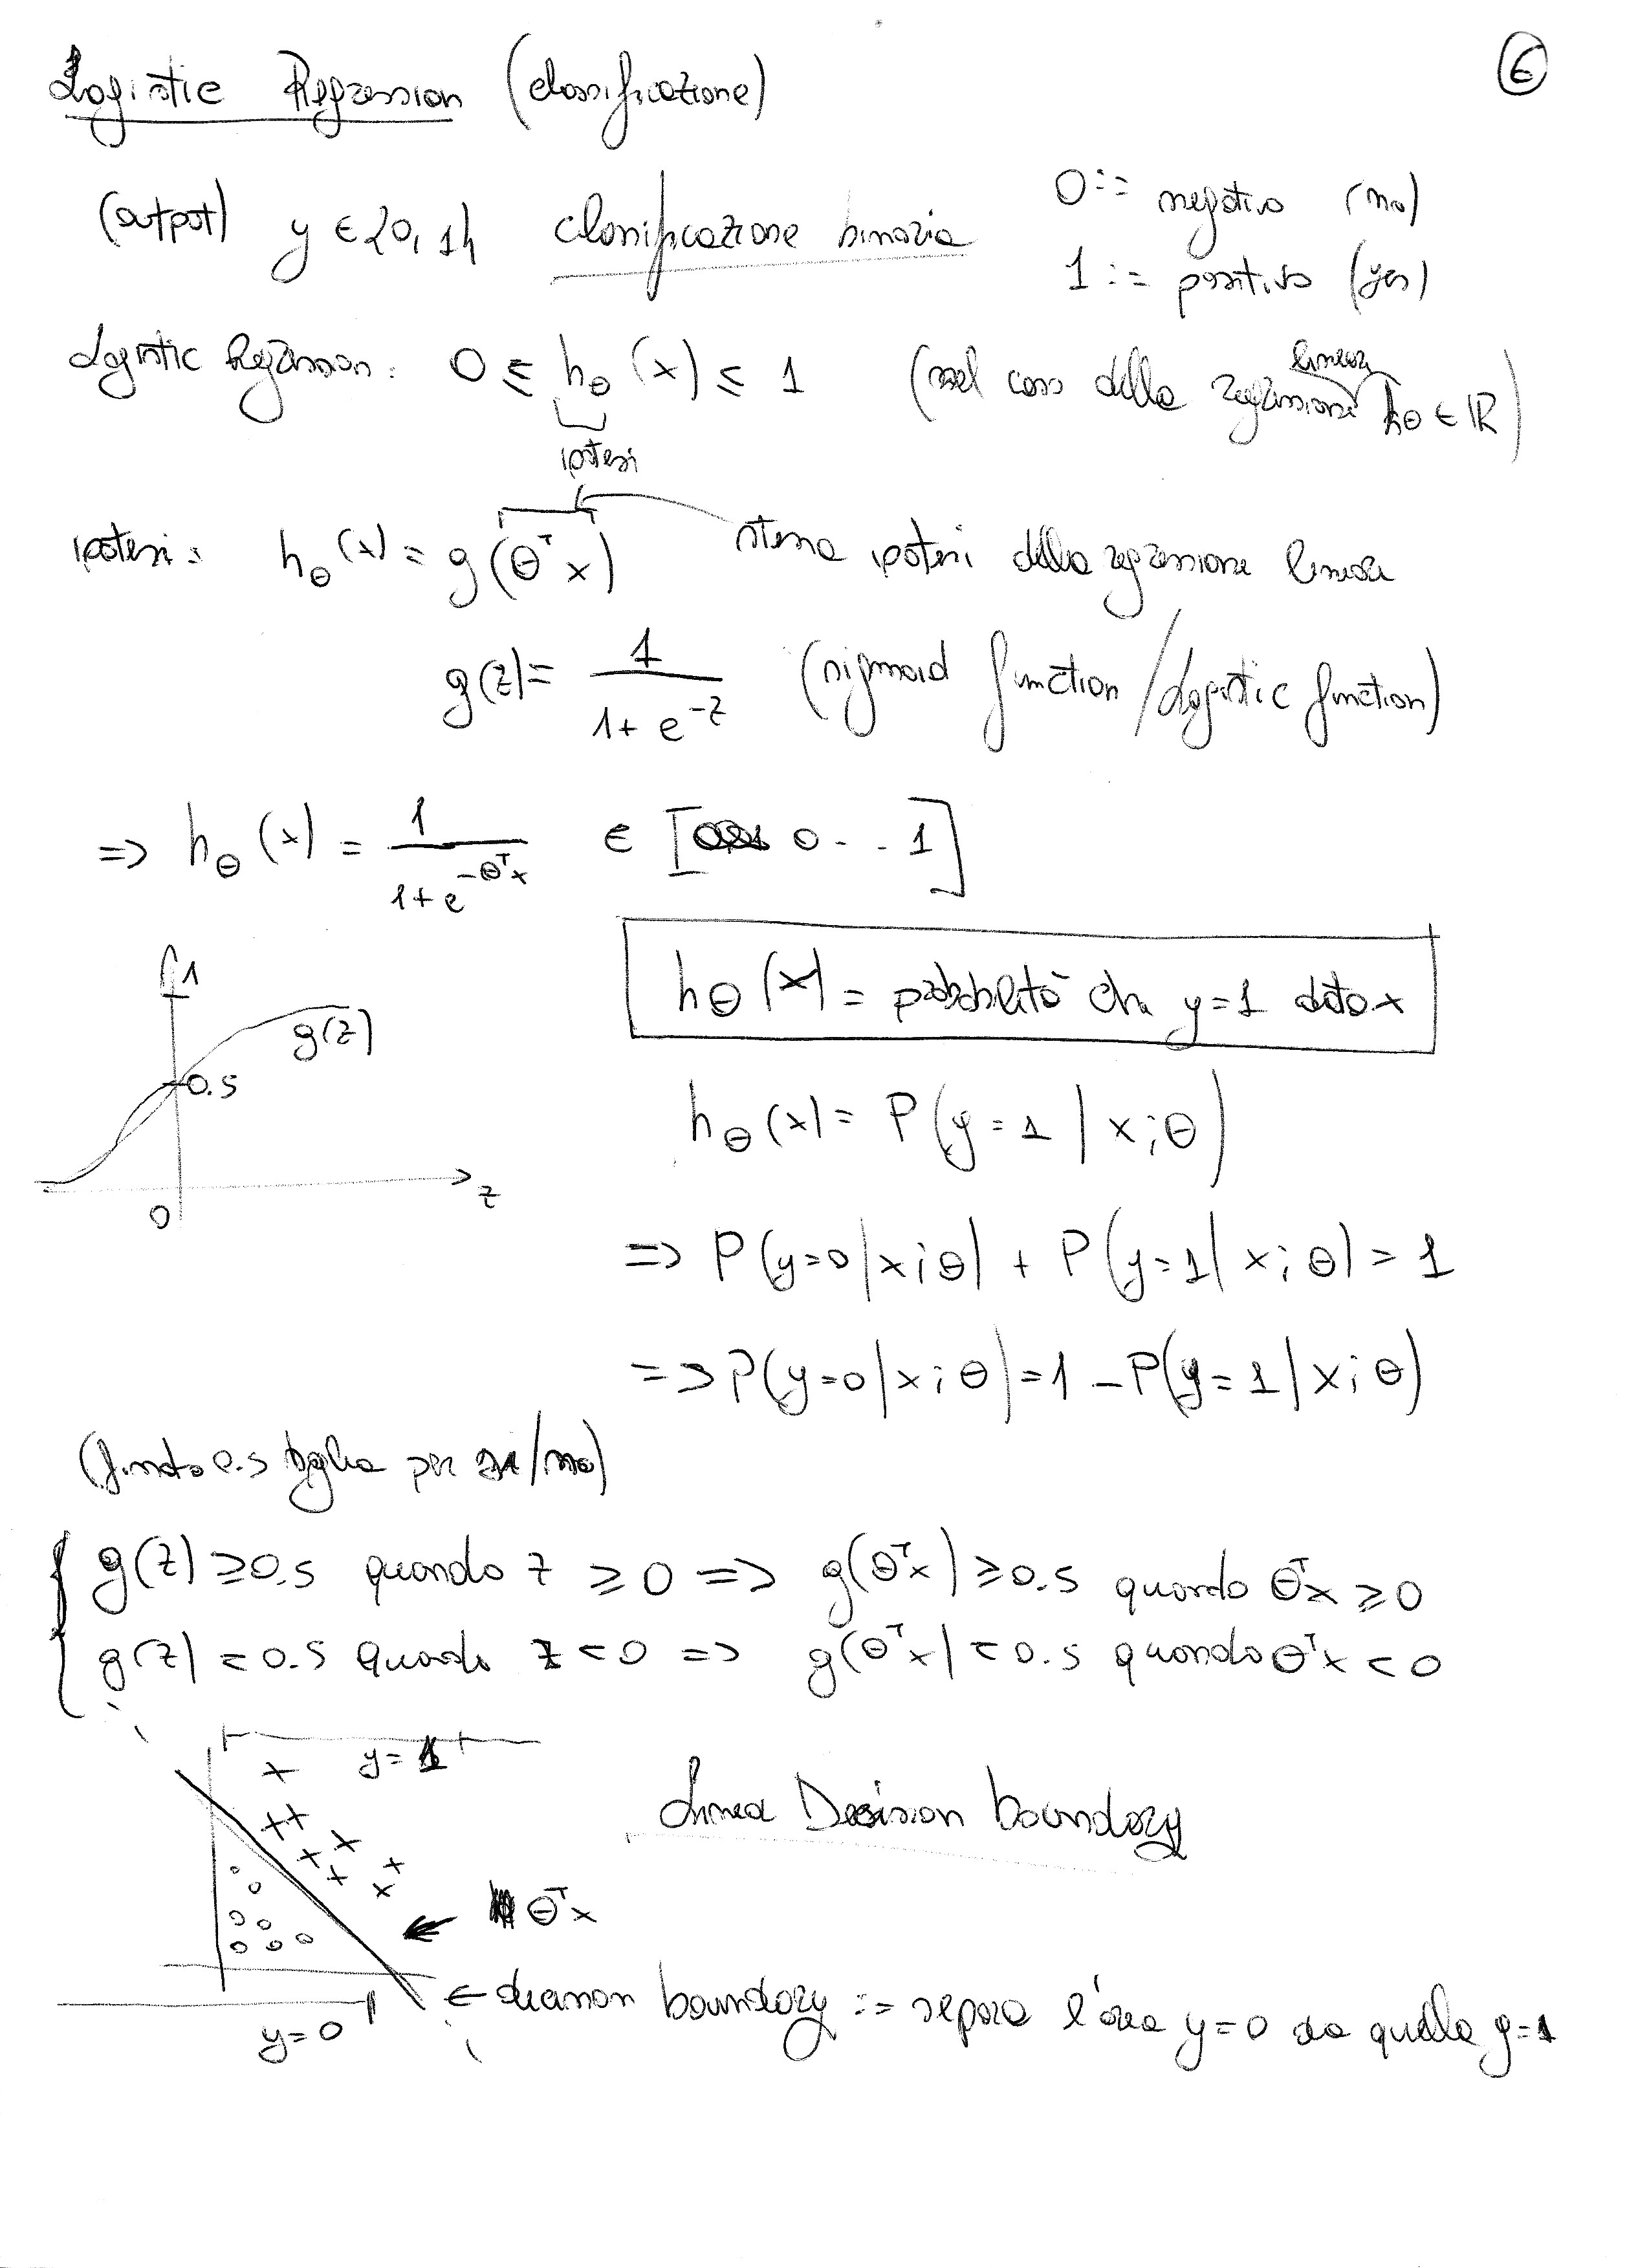 Logistic Regression (classificazione)
6
(output) y ∈ {0, 1} classificazione binaria
0 := negativo (no)
1 := positivo (yes)
Logistic Regression: 0 ≤ hθ(x) ≤ 1 (nel caso della regressione lineare hθ ∈ ℝ)
ipotesi
ipotesi: hθ(x) = g(θᵀx) stessa ipotesi della regressione lineare
g(z) = 1 / (1 + e^-z) (sigmoid function / Logistic function)
=> hθ(x) = 1 / (1 + e^-θᵀx) ∈ [0 .. 1]
1
g(z)
0.5
z
0
hθ(x) = probabilità che y=1 dato x
hθ(x) = P(y=1 | x;θ)
=> P(y=0|x;θ) + P(y=1|x;θ) = 1
=> P(y=0|x;θ) = 1 - P(y=1|x;θ)
0.5 soglia per /no)
g(z) ≥ 0.5 quando z ≥ 0 => g(θᵀx) ≥ 0.5 quando θᵀx ≥ 0
g(z) < 0.5 quando z < 0 => g(θᵀx) < 0.5 quando θᵀx < 0
y = 1
Linea Decision boundary
θᵀx
← decision boundary := separa l'area y=0 da quella y=1
y=0